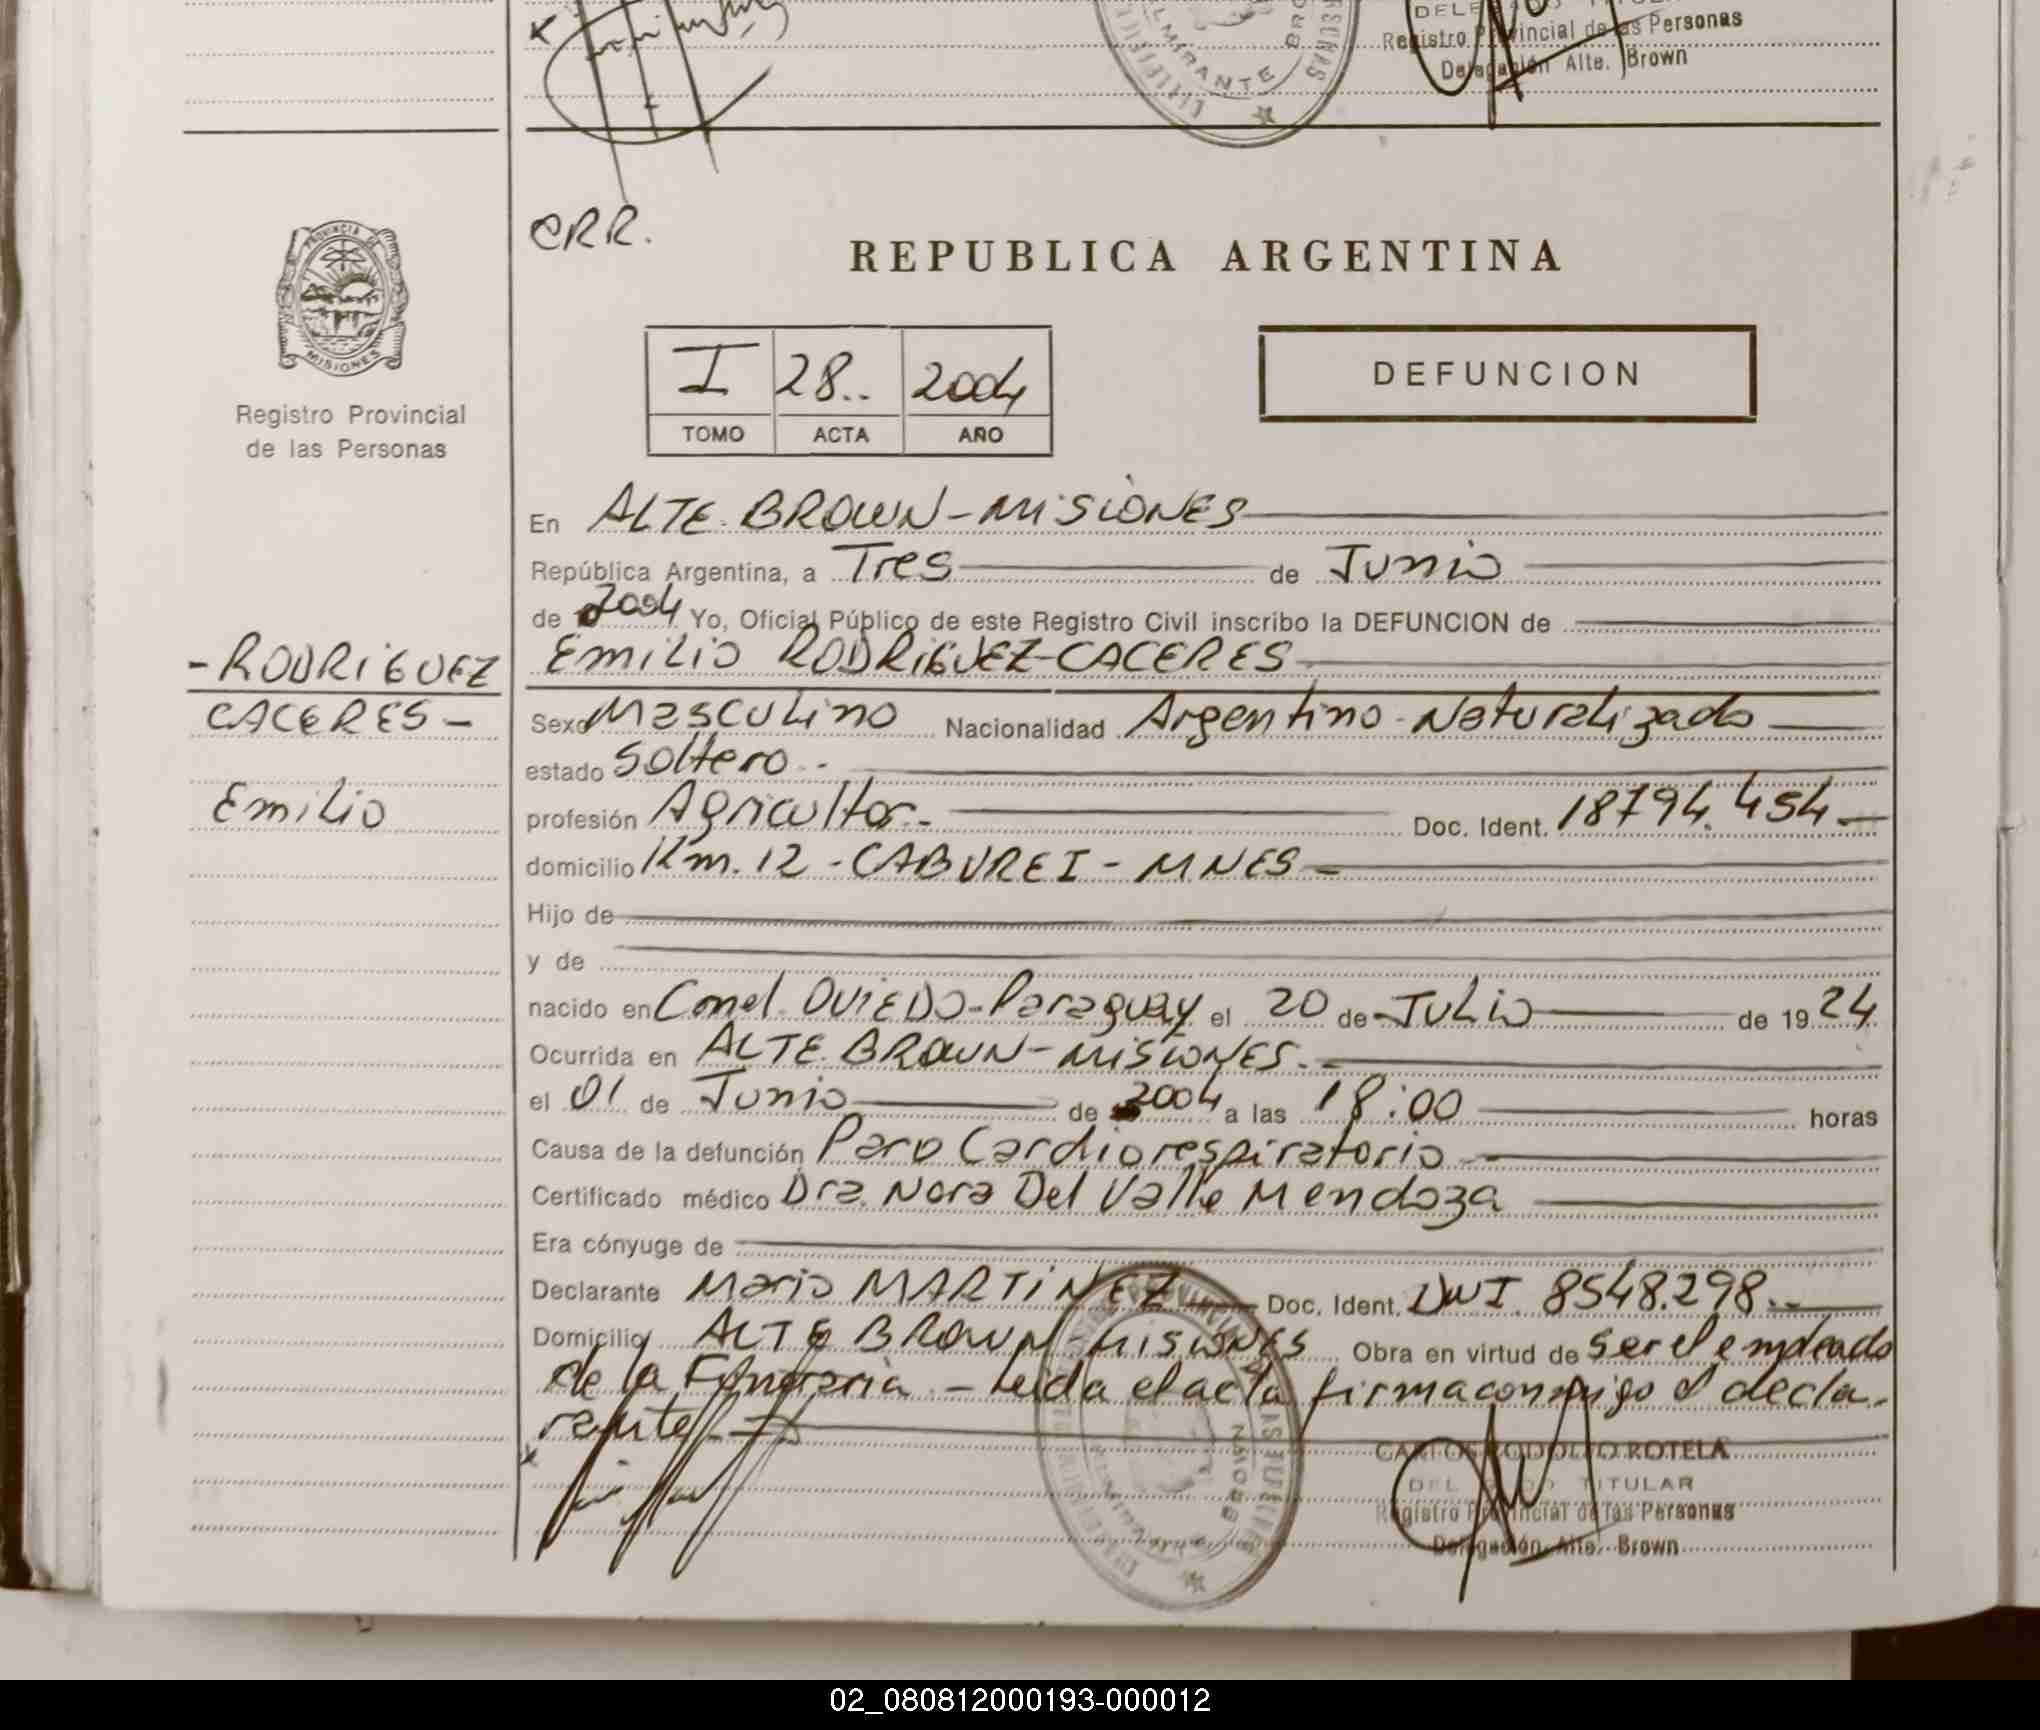 DELEGADO TITULAR
Registro Provincial de las Personas
Delegación Alte. Brown
ALMIRANTE BROWN
CRR.
REPUBLICA ARGENTINA
PROVINCIA DE
MISIONES
Registro Provincial
de las Personas
I 28.. 2004
TOMO ACTA AÑO
DEFUNCION
En ALTE. BROWN - MISIONES
República Argentina, a Tres de Junio
de 2004 Yo, Oficial Público de este Registro Civil inscribo la DEFUNCION de
- RODRIGUEZ
CACERES -
Emilio
Emilio RODRIGUEZ-CACERES
Sexo Masculino Nacionalidad Argentino-Naturalizado
estado Soltero.-
profesión Agricultor.- Doc. Ident. 18794.454.-
domicilio Km. 12 - CABUREI - MNES -
Hijo de
y de
nacido en Conel. OVIEDO-Paraguay el 20 de JULIO de 1924
Ocurrida en ALTE. BROWN - MISIONES.-
el 01 de Junio de 2004 a las 18:00 horas
Causa de la defunción Paro Cardiorespiratorio
Certificado médico Dra. Nora Del Valle Mendoza
Era cónyuge de
Declarante Mario MARTINEZ Doc. Ident. DNI 8548.298.-
Domicilio ALTE BROWN MISIONES Obra en virtud de ser el empleado
de la Funeraria. - Leida el acta firma conmigo el decla-
rante. -
BROWN
CARLOS RODOLFO ROTELA
DELEGADO TITULAR
Registro Provincial de las Personas
Delegación Alte. Brown
02_080812000193-000012